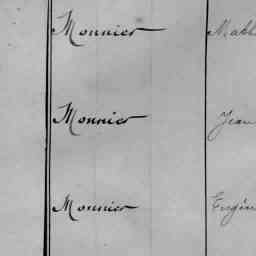 Monnier Math
Monnier Jean
Monnier Eugène